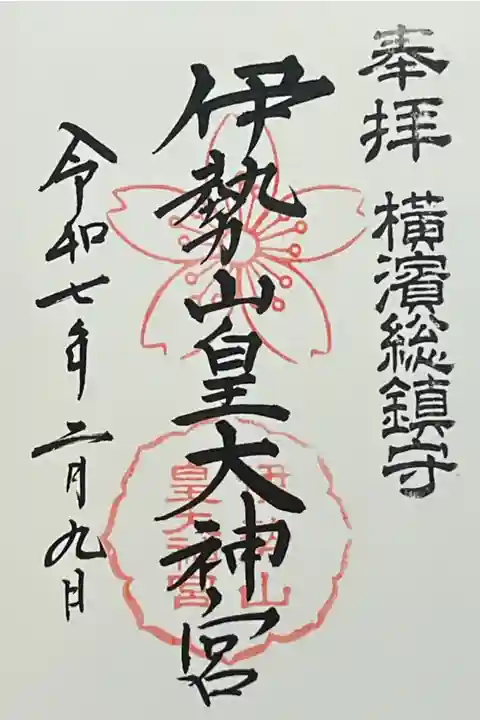 奉拝 横濱総鎮守
伊勢山皇大神宮
伊勢山
皇大神宮
令和七年二月九日